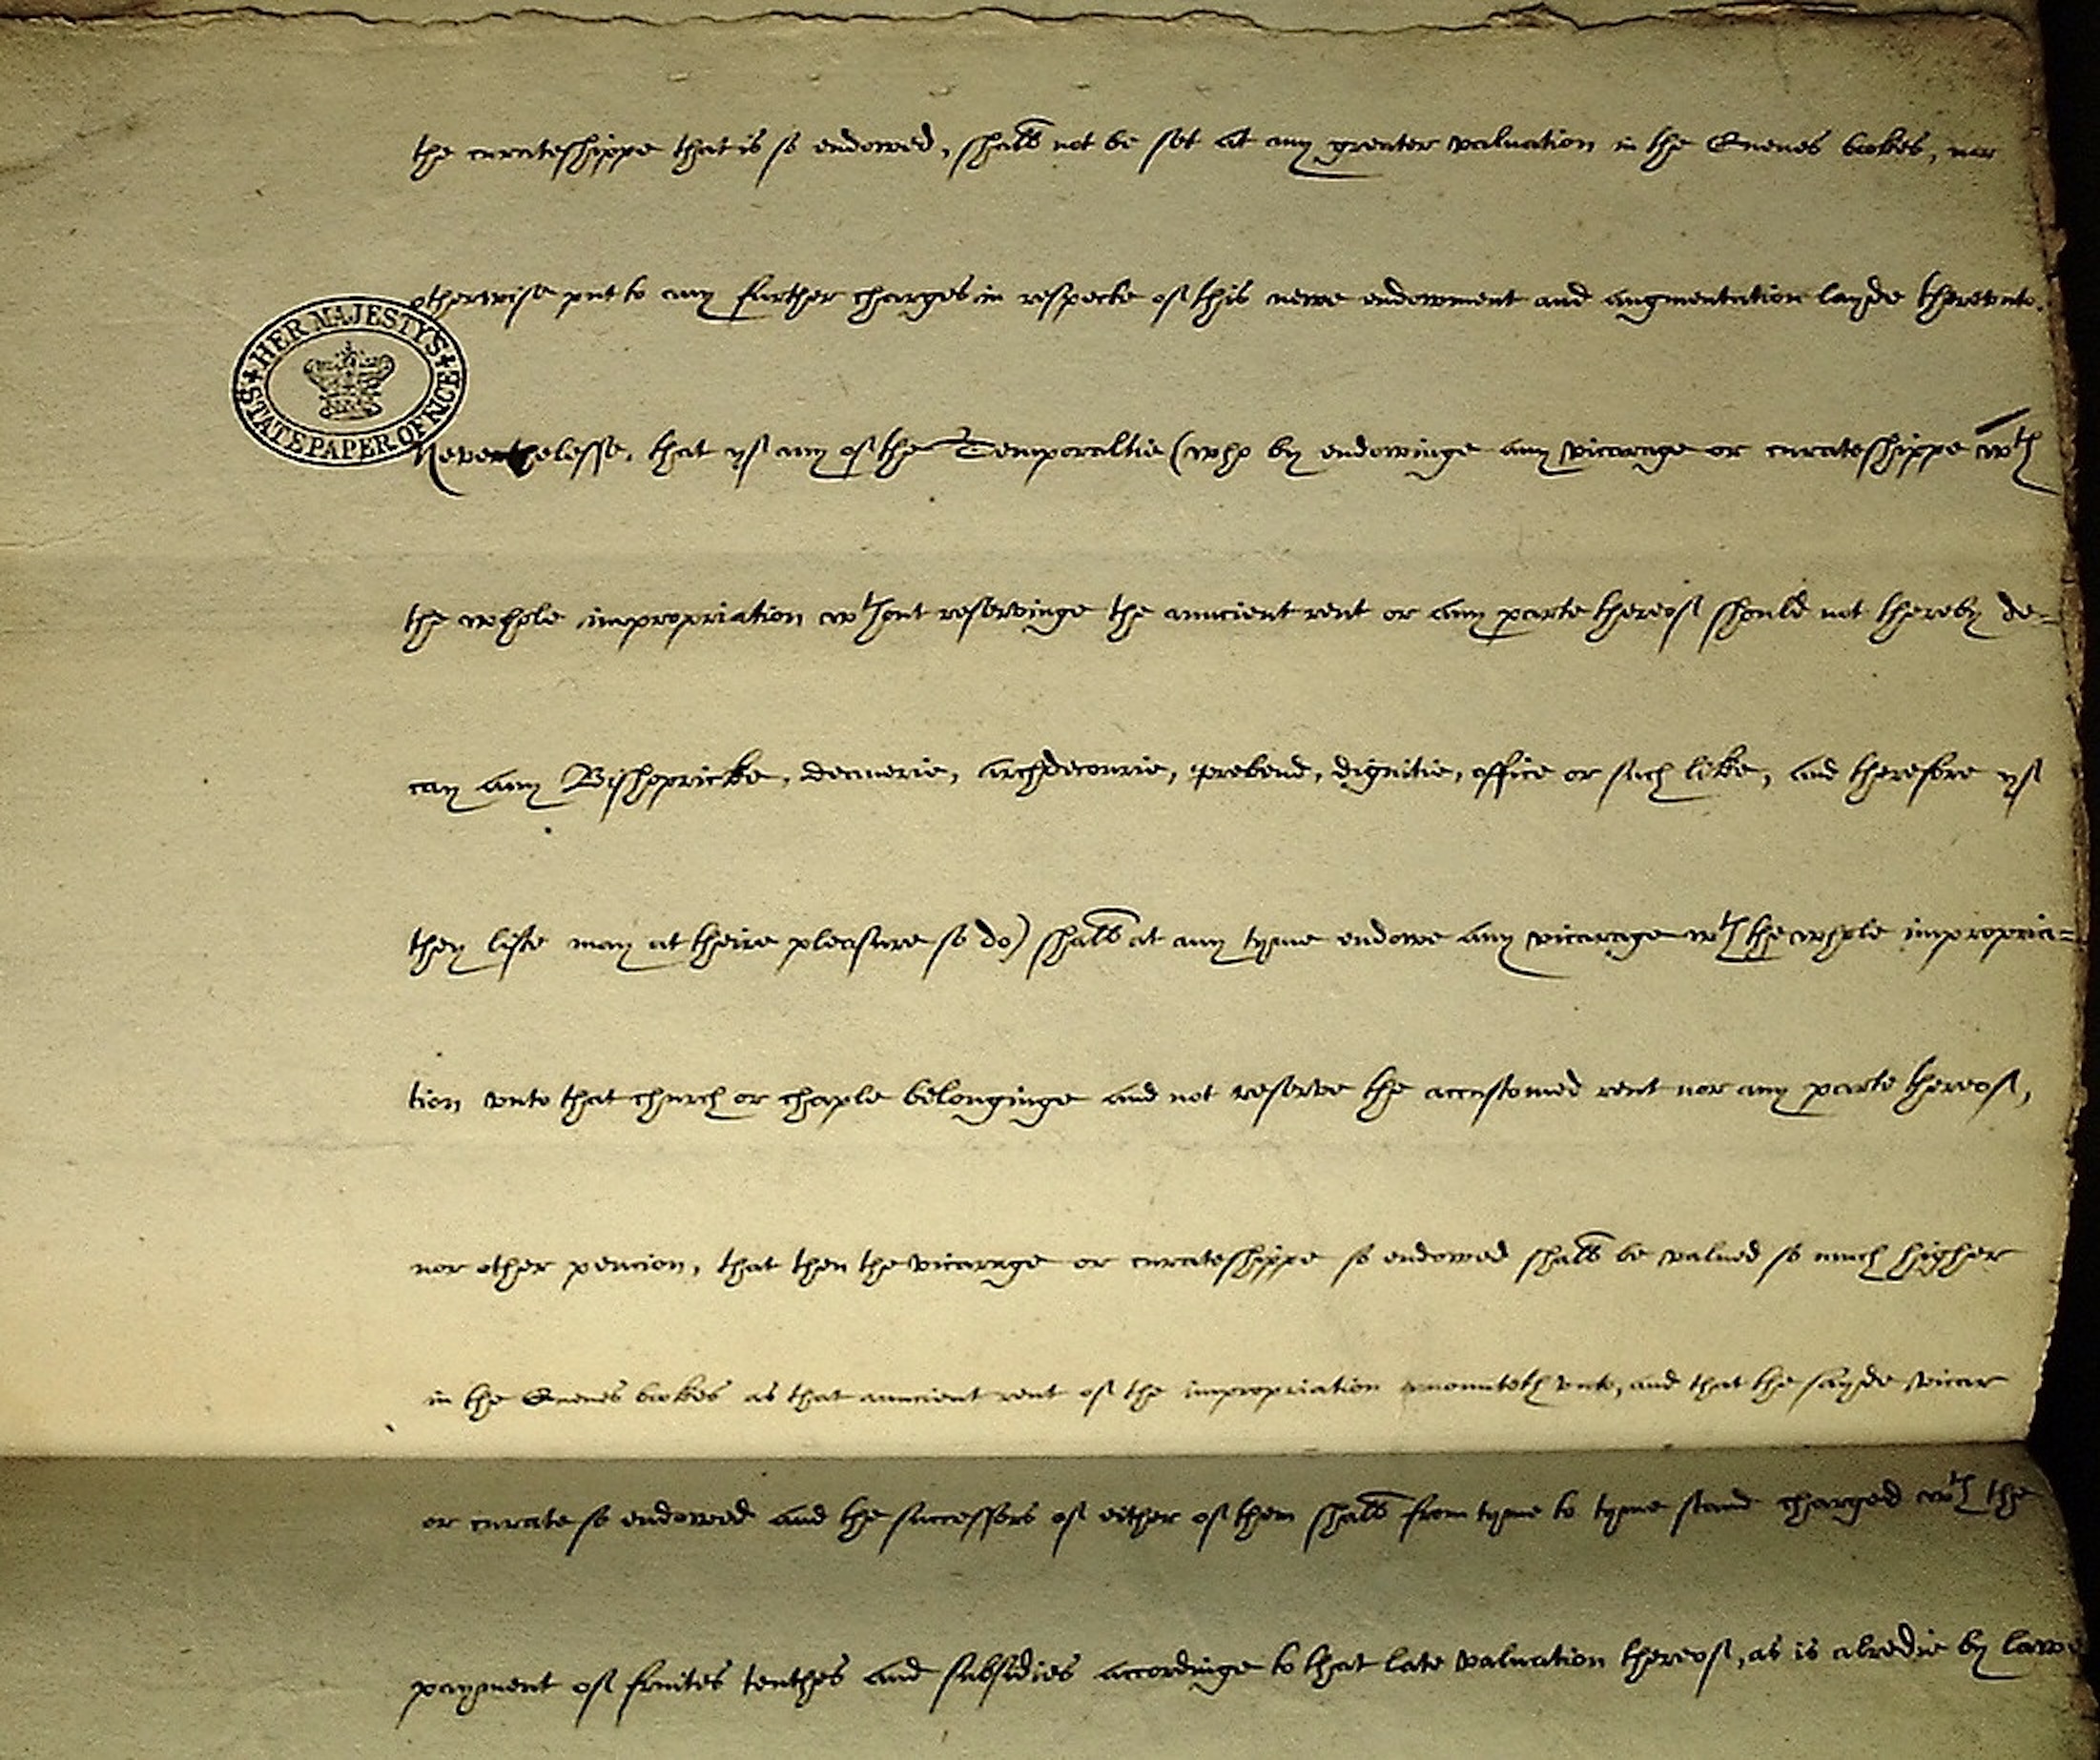 the curateshippe that is so endowed, shall not be set at any greater valuation in the Quenes bookes, nor
otherwise put to any further charges in respecte of this newe endowment and augmentation layde therevnto.
HER MAJESTY'S STATE PAPER OFFICE
Neverthelesse, that yf any of the Temporaltie (who by endowinge any vicarage or curateshippe wth
the whole impropriation wthout reservinge the auncient rent or any parte thereof should not thereby de=
cay any Bishopricke, deanerie, archdeconrie, prebend, dignitie, office or such like, and therefore yf
they liste may at theire pleasure so do) shall at any tyme endowe any vicarage wth the whole impropria=
tion vnto that church or chaple belonginge and not reserve the accustomed rent nor any parte thereof,
nor other pencion, that then the vicarage or curateshippe so endowed shall be valued so much higher
in the Quenes bookes as that auncient rent of the impropriation amounteth vnto, and that the sayde vicar
or curate so endowed and the successors of either of them shall from tyme to tyme stand charged wth the
payment of fruites tenthes and subsidies accordinge to that late valuation thereof, as is alredie by lawe